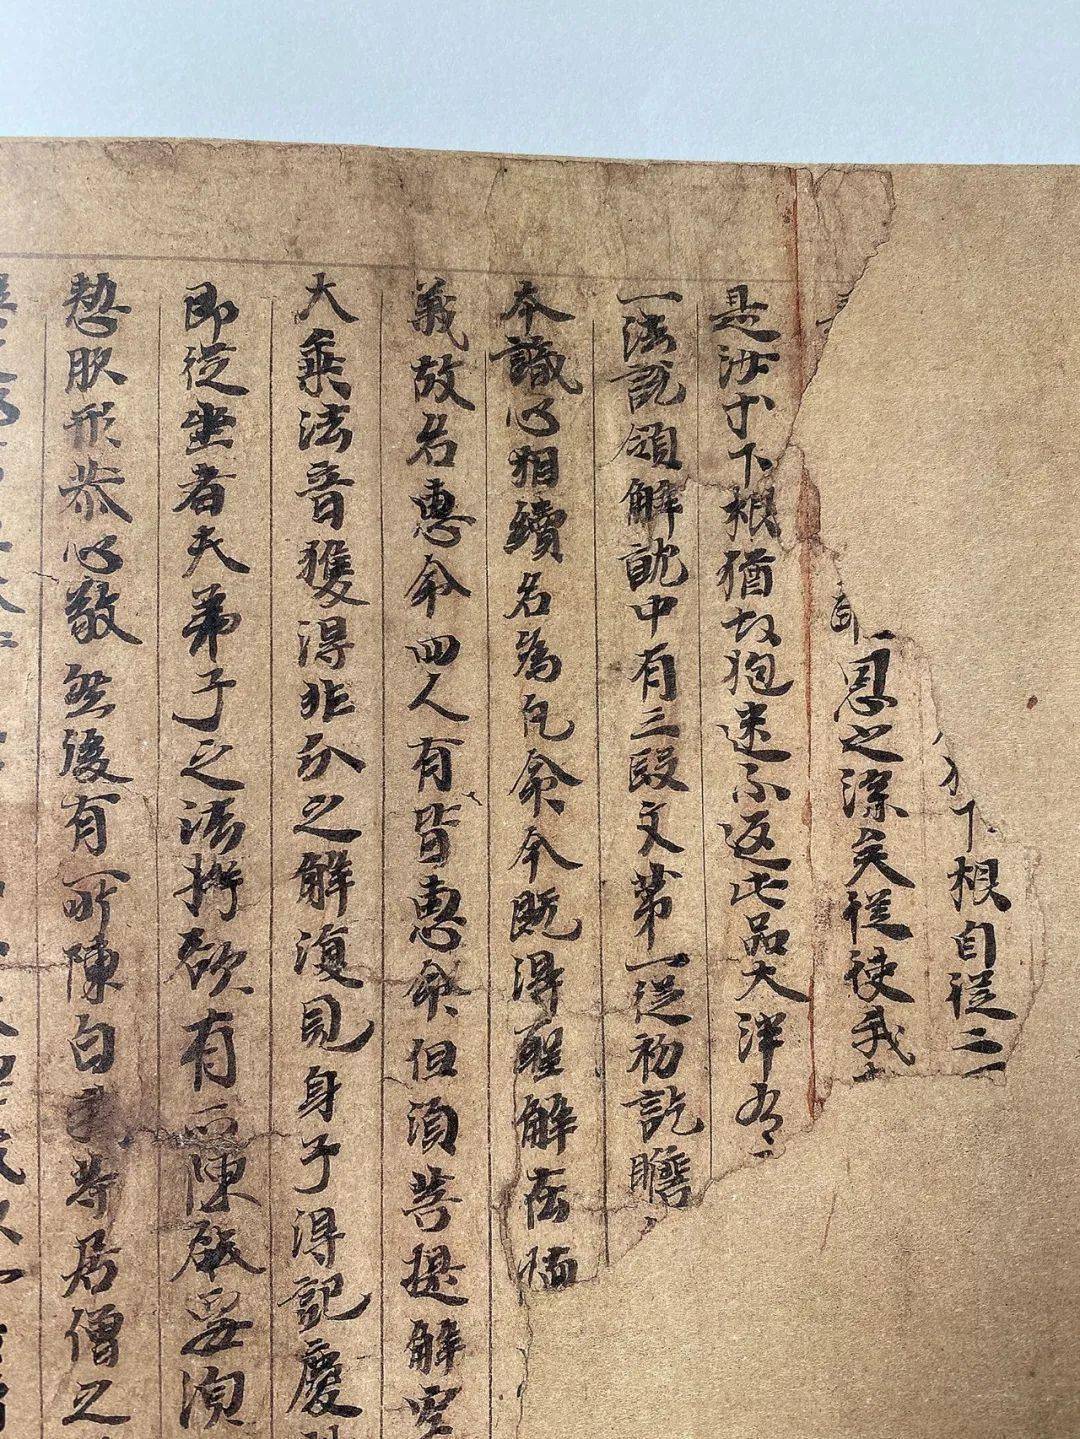 下根自從二
恩之深矣從使我
是沙才下根猶故抱迷不返此品大洋有
一法說領解就中有三段文第一從初訖瞻
本識心相續名為凡命今既得聖解在
義故名惠命四人有皆惠命但須菩提解空
大乘法音獲得非分之解復見身子得記慶
即從坐者夫弟子之法擬欲有所陳啟妥須
慗服形恭心敬然後有所陳白 等居僧之